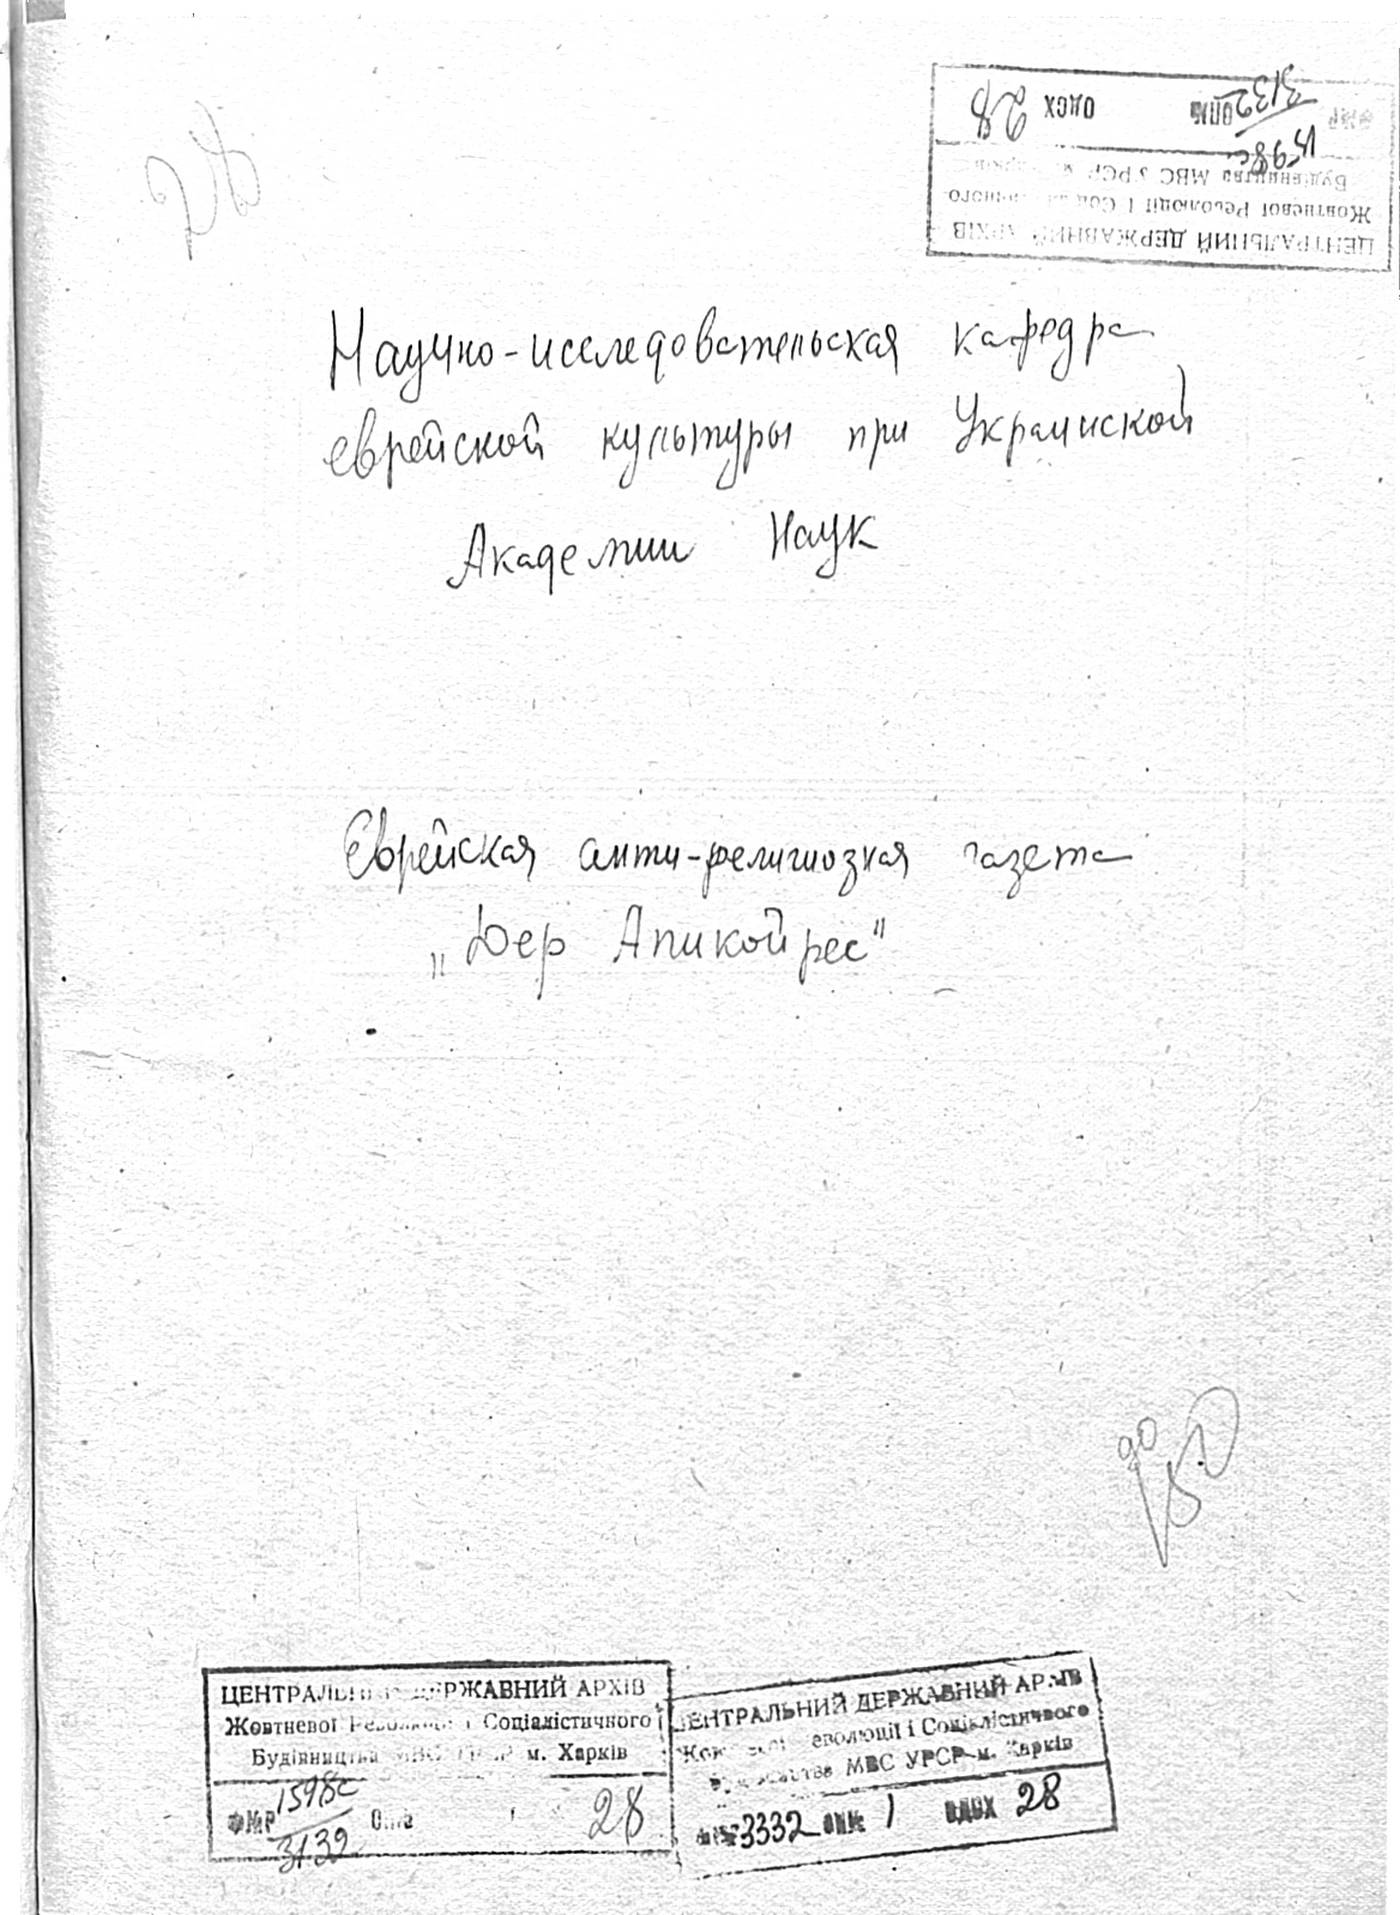 Научно-исследовательская кафедра
еврейской культуры при Украинской
Академии Наук
Еврейская анти-религиозная газета
„Дер Апикойрес"
до
ЦЕНТРАЛЬНИЙ ДЕРЖАВНИЙ АРХІВ
Жовтневої Революції і Соціалістичного
Будівництва МВС УРСР м. Харків
ФМР 1598с Опис 28
3132
ЦЕНТРАЛЬНИЙ ДЕРЖАВНИЙ АРХІВ
Жовтневої Революції і Соціалістичного
Будівництва МВС УРСР м. Харків
3332 ОПИС 1 ОДЗХ 28
ЦЕНТРАЛЬНИЙ ДЕРЖАВНИЙ АРХІВ
Жовтневої Революції і Соціалістичного
Будівництва МВС УРСР
3132 28